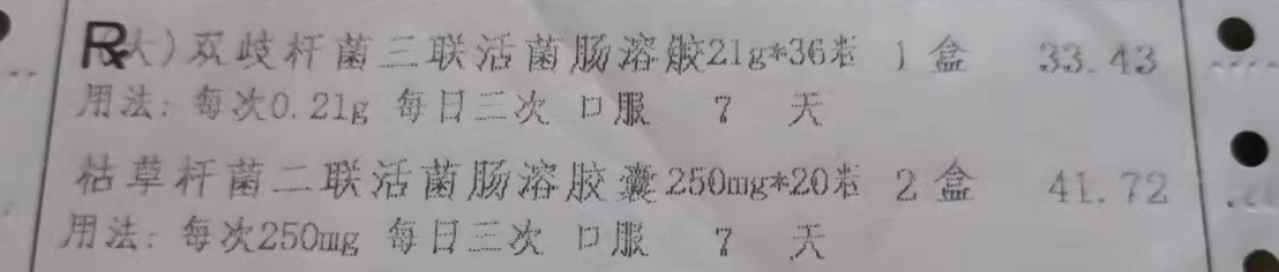 Rx大)双歧杆菌三联活菌肠溶胶21g*36粒 1 盒 33.43
用法: 每次0.21g 每日三次 口服 7 天
枯草杆菌二联活菌肠溶胶囊250mg*20粒 2 盒 41.72
用法: 每次250mg 每日三次 口服 7 天